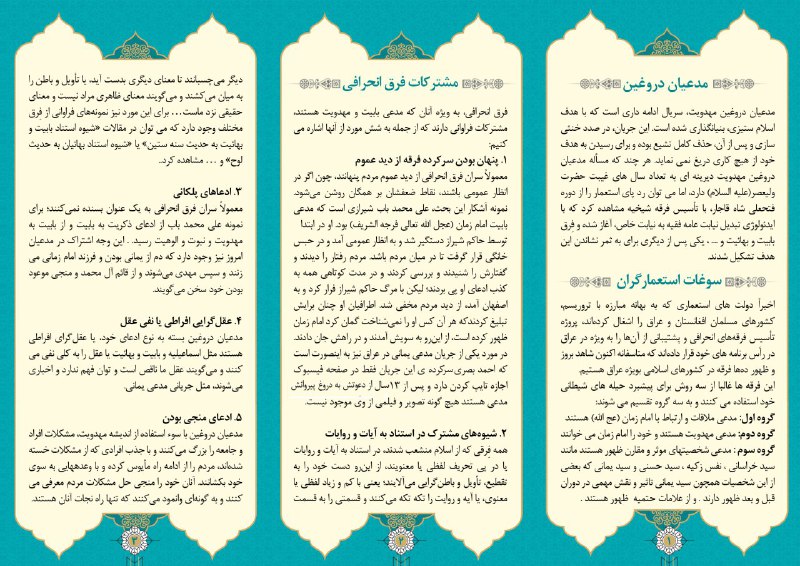 مدعیان دروغین
مدعیان دروغین مهدویت، سریال ادامه داری است که با هدف
اسلام ستیزی، بنیانگذاری شده است. این جریان، در صدد خنثی
سازی و پس از آن، حذف کامل تشیع بوده و برای رسیدن به هدف
خود از هیچ کاری دریغ نمی نماید. هر چند که مسأله مدعیان
دروغین مهدویت دیرینه ای به تعداد سال های غیبت حضرت
ولیعصر(علیه السلام) دارد، اما می توان رد پای استعمار را از دوره
فتحعلی شاه قاجار، با تأسیس فرقه شیخیه مشاهده کرد که با
ایدئولوژی تبدیل نیابت عامه فقیه به نیابت خاص، آغاز شده و فرق
بابیت و بهائیت و ... ، یکی پس از دیگری برای به ثمر نشاندن این
هدف تشکیل شدند.
سوغات استعمارگران
اخیراً دولت های استعماری که به بهانه مبارزه با تروریسم،
کشورهای مسلمان افغانستان و عراق را اشغال کرده‌اند، پروژه
تأسیس فرقه‌های انحرافی و پشتیبانی از آن‌ها را به ویژه در عراق
در رأس برنامه های خود قرار داده‌اند که متاسفانه اکنون شاهد بروز
و ظهور ده‌ها فرقه در کشورهای اسلامی بویژه عراق هستیم.
این فرقه ها غالبا از سه روش برای پیشبرد حیله های شیطانی
خود استفاده می کنند و به سه گروه تقسیم می شوند:
گروه اول: مدعی ملاقات و ارتباط با امام زمان (عج الله) هستند
گروه دوم: مدعی مهدویت هستند و خود را امام زمان می خوانند
گروه سوم : مدعی شخصیتهای موثر و مقارن ظهور هستند مانند
سید خراسانی ، نفس زکیه ، سید حسنی و سید یمانی که بعضی
از این شخصیات همچون سید یمانی تاثیر و نقش مهمی در دوران
قبل و بعد ظهور دارند . و از علامات حتمیه ظهور هستند .
۱
مشترکات فرق انحرافی
فرق انحرافی، به ویژه آنان که مدعی بابیت و مهدویت هستند،
مشترکات فراوانی دارند که از جمله به شش مورد از آنها اشاره می
کنیم:
۱. پنهان بودن سرکرده فرقه از دید عموم
معمولاً سران فرق انحرافی از دید عموم مردم پنهانند، چون اگر در
انظار عمومی باشند، نقاط ضعفشان بر همگان روشن می‌شود.
نمونه آشکار این بحث، علی محمد باب شیرازی است که مدعی
بابیت امام زمان (عجل الله تعالی فرجه الشریف) بود. او در ابتدا
توسط حاکم شیراز دستگیر شد و به انظار عمومی آمد و در حبس
خانگی قرار گرفت تا در میان مردم باشد. مردم رفتار را دیدند و
گفتارش را شنیدند و بررسی کردند و در مدت کوتاهی همه به
کذب ادعای او پی بردند؛ لیکن با مرگ حاکم شیراز فرار کرد و به
اصفهان آمد، از دید مردم مخفی شد. اطرافیان او چنان برایش
تبلیغ کردندکه هر آن کس او را نمی‌شناخت گمان کرد امام زمان
ظهور کرده است. از این‌رو به سویش آمدند و در راهش جان دادند.
در مورد یکی از جریان مدعی یمانی در عراق نیز به اینصورت است
که احمد بصری سرکرده ی این جریان فقط در صفحه فیسبوک
اجازه تایپ کردن دارد و پس از ۱۳سال از دعوتش به دروغ پیروانش
مدعی هستند هیچ گونه تصویر و فیلمی از وی موجود نیست.
۲. شیوه‌های مشترک در استناد به آیات و روایات
همه فِرقی که از اسلام منشعب شدند، در استناد به آیات و روایات
یا در پی تحریف لفظی یا معنویند، از این‌رو دست خود را به
تقطیع، تأویل و باطن‌گرایی می‌آلایند؛ یعنی با کم و زیاد لفظی یا
معنوی، یا آیه و روایت را تکه تکه می‌کنند و قسمتی را به قسمت
۲
دیگر می‌چسبانند تا معنای دیگری بدست آید، یا تأویل و باطن را
به میان می‌کشند و می‌گویند معنای ظاهری مراد نیست و معنای
حقیقی نزد ماست... برای این مورد نیز نمونه‌های فراوانی از فرق
مختلف وجود دارد که می توان در مقالات «شیوه استناد بابیت و
بهائیت به حدیث سنه ستین» یا «شیوه استناد بهائیان به حدیث
لوح» و ... مشاهده کرد.
۳. ادعاهای پلکانی
معمولاً سران فرق انحرافی به یک عنوان بسنده نمی‌کنند؛ برای
نمونه علی محمد باب از ادعای ذکریت به بابیت و از بابیت به
مهدویت و نبوت و الوهیت رسید . این وجه اشتراک در مدعیان
امروز نیز وجود دارد که دم از یمانی بودن و فرزند امام زمانی می
زنند و سپس مهدی می‌شوند و از قائم آل محمد و منجی موعود
بودن خود سخن می‌گویند.
۴. عقل‌گرایی افراطی یا نفی عقل
مدعیان دروغین بسته به نوع ادعای خود، یا عقل‌گرای افراطی
هستند مثل اسماعیلیه و بابیت و بهائیت یا عقل را به کلی نفی می
کنند و می‌گویند عقل ما ناقص است و توان فهم ندارد و اخباری
می‌شوند، مثل جریانی مدعی یمانی.
۵. ادعای منجی بودن
مدعیان دروغین با سوء استفاده از اندیشه مهدویت، مشکلات افراد
و جامعه را بزرگ می‌کنند و با جذب افرادی که از مشکلات خسته
شده‌اند، مردم را از ادامه راه مأیوس کرده و با وعده‌هایی به سوی
خود بکشانند. آنان خود را منجی حل مشکلات مردم معرفی می
کنند و به گونه‌ای وانمود می‌کنند که تنها راه نجات آنان هستند.
۳